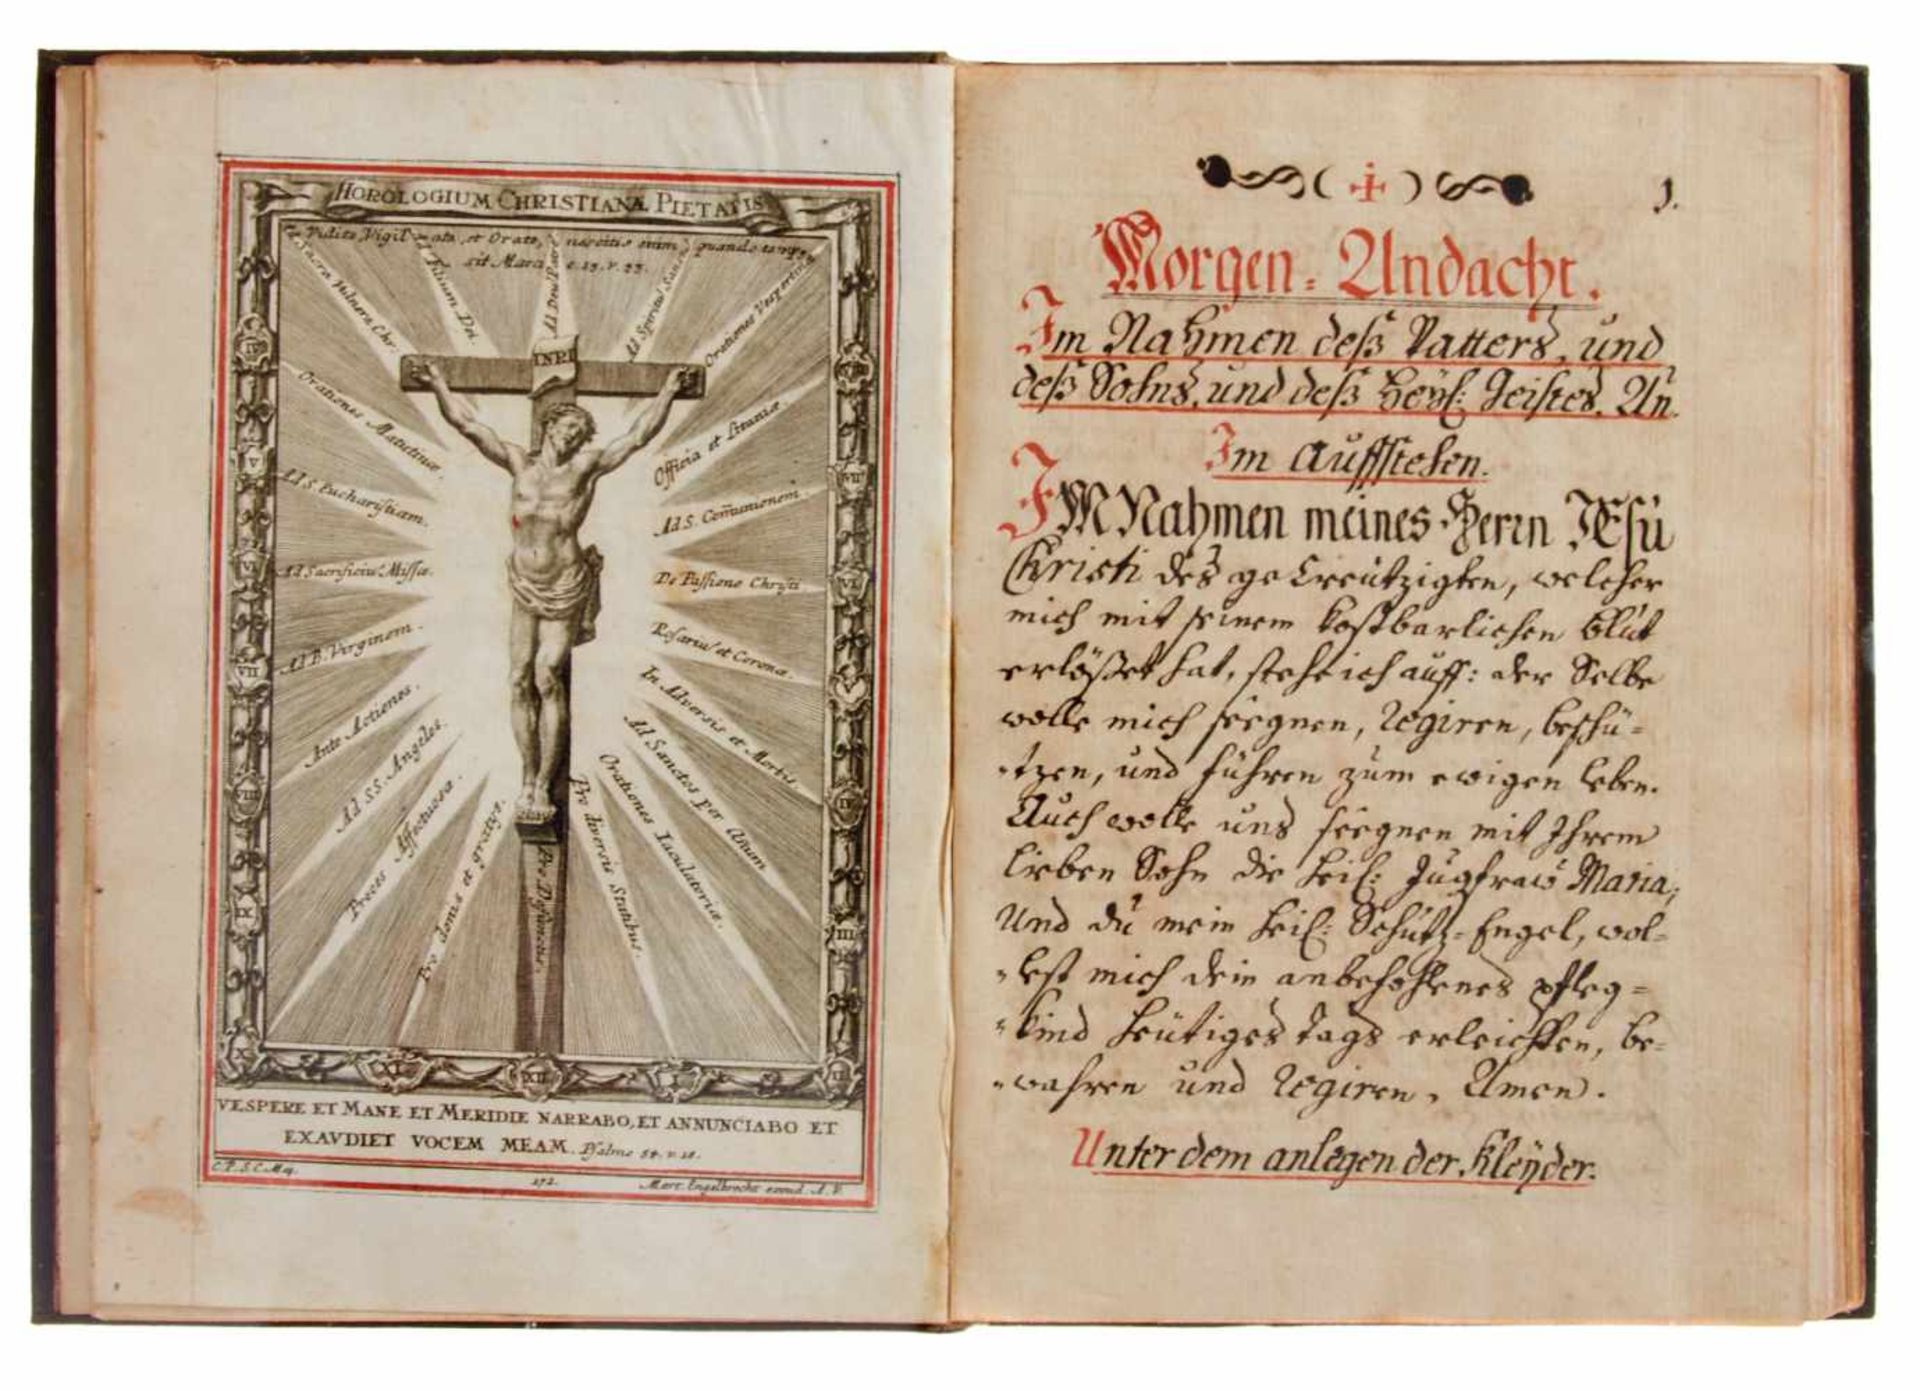 HOROLOGIUM CHRISTIANÆ PIETATIS
Vidite, Vigilate, et Orate, nescitis enim, quando tempus
sit Marci. c. 13. v. 33.
Ad Sacra Vulnera Chr.
Ad Filium Dei.
Ad Deum Patrem
Ad Spiritum Sanctum
Orationes Vespertinæ
INRI
Orationes Matutinæ
Officia et Litaniæ
Ad S. Eucharistiam.
Ad S. Com̃unionem
Ad Sacrificiũ Missæ.
De Passione Christi
Ad B. Virginem.
Rosariũ et Corona
Ante Actiones.
In Adversis et Morbis
Ad SS. Angelos.
Ad Sanctos per Añum
Preces Affectuosæ
Orationes Iaculatoriæ.
Pro donis et gratijs.
Pro diversis Statibus.
Pro Defunctis.
V
VI
VII
VIII
IX
X
XI
XII
I
II
III
IV
V
VI
VII
VIII
VESPERE ET MANE ET MERIDIE NARRABO, ET ANNUNCIABO ET
EXAVDIET VOCEM MEAM. Psalmo 54. v. 18.
C. P. S. C. Maj.
172.
Mart. Engelbrecht excud. A. V.
1.
Morgen = Andacht.
Im Nahmen deß Vatters, und
deß Sohns, und deß Heyl: Geistes. Am.
Im Auffstehen.
IM Nahmen meines Herrn JESu
Christi des gecreützigten, welcher
mich mit seinem kostbarlichen Blut
erlößet hat, stehe ich auff: der Selbe
wolle mich seegnen, Regiren, beschü=
=tzen, und führen zum ewigen leben.
Auch wolle uns seegnen mit Ihrem
lieben Sohn die heil: Jugfraw Maria,
Und du mein heil: Schutz-Engel, wol=
=lest mich dein anbefohlenes pfleg=
=kind heütiges tags erleichten, be=
=wahren und Regiren, Amen.
Unter dem anlegen der Kleyder.